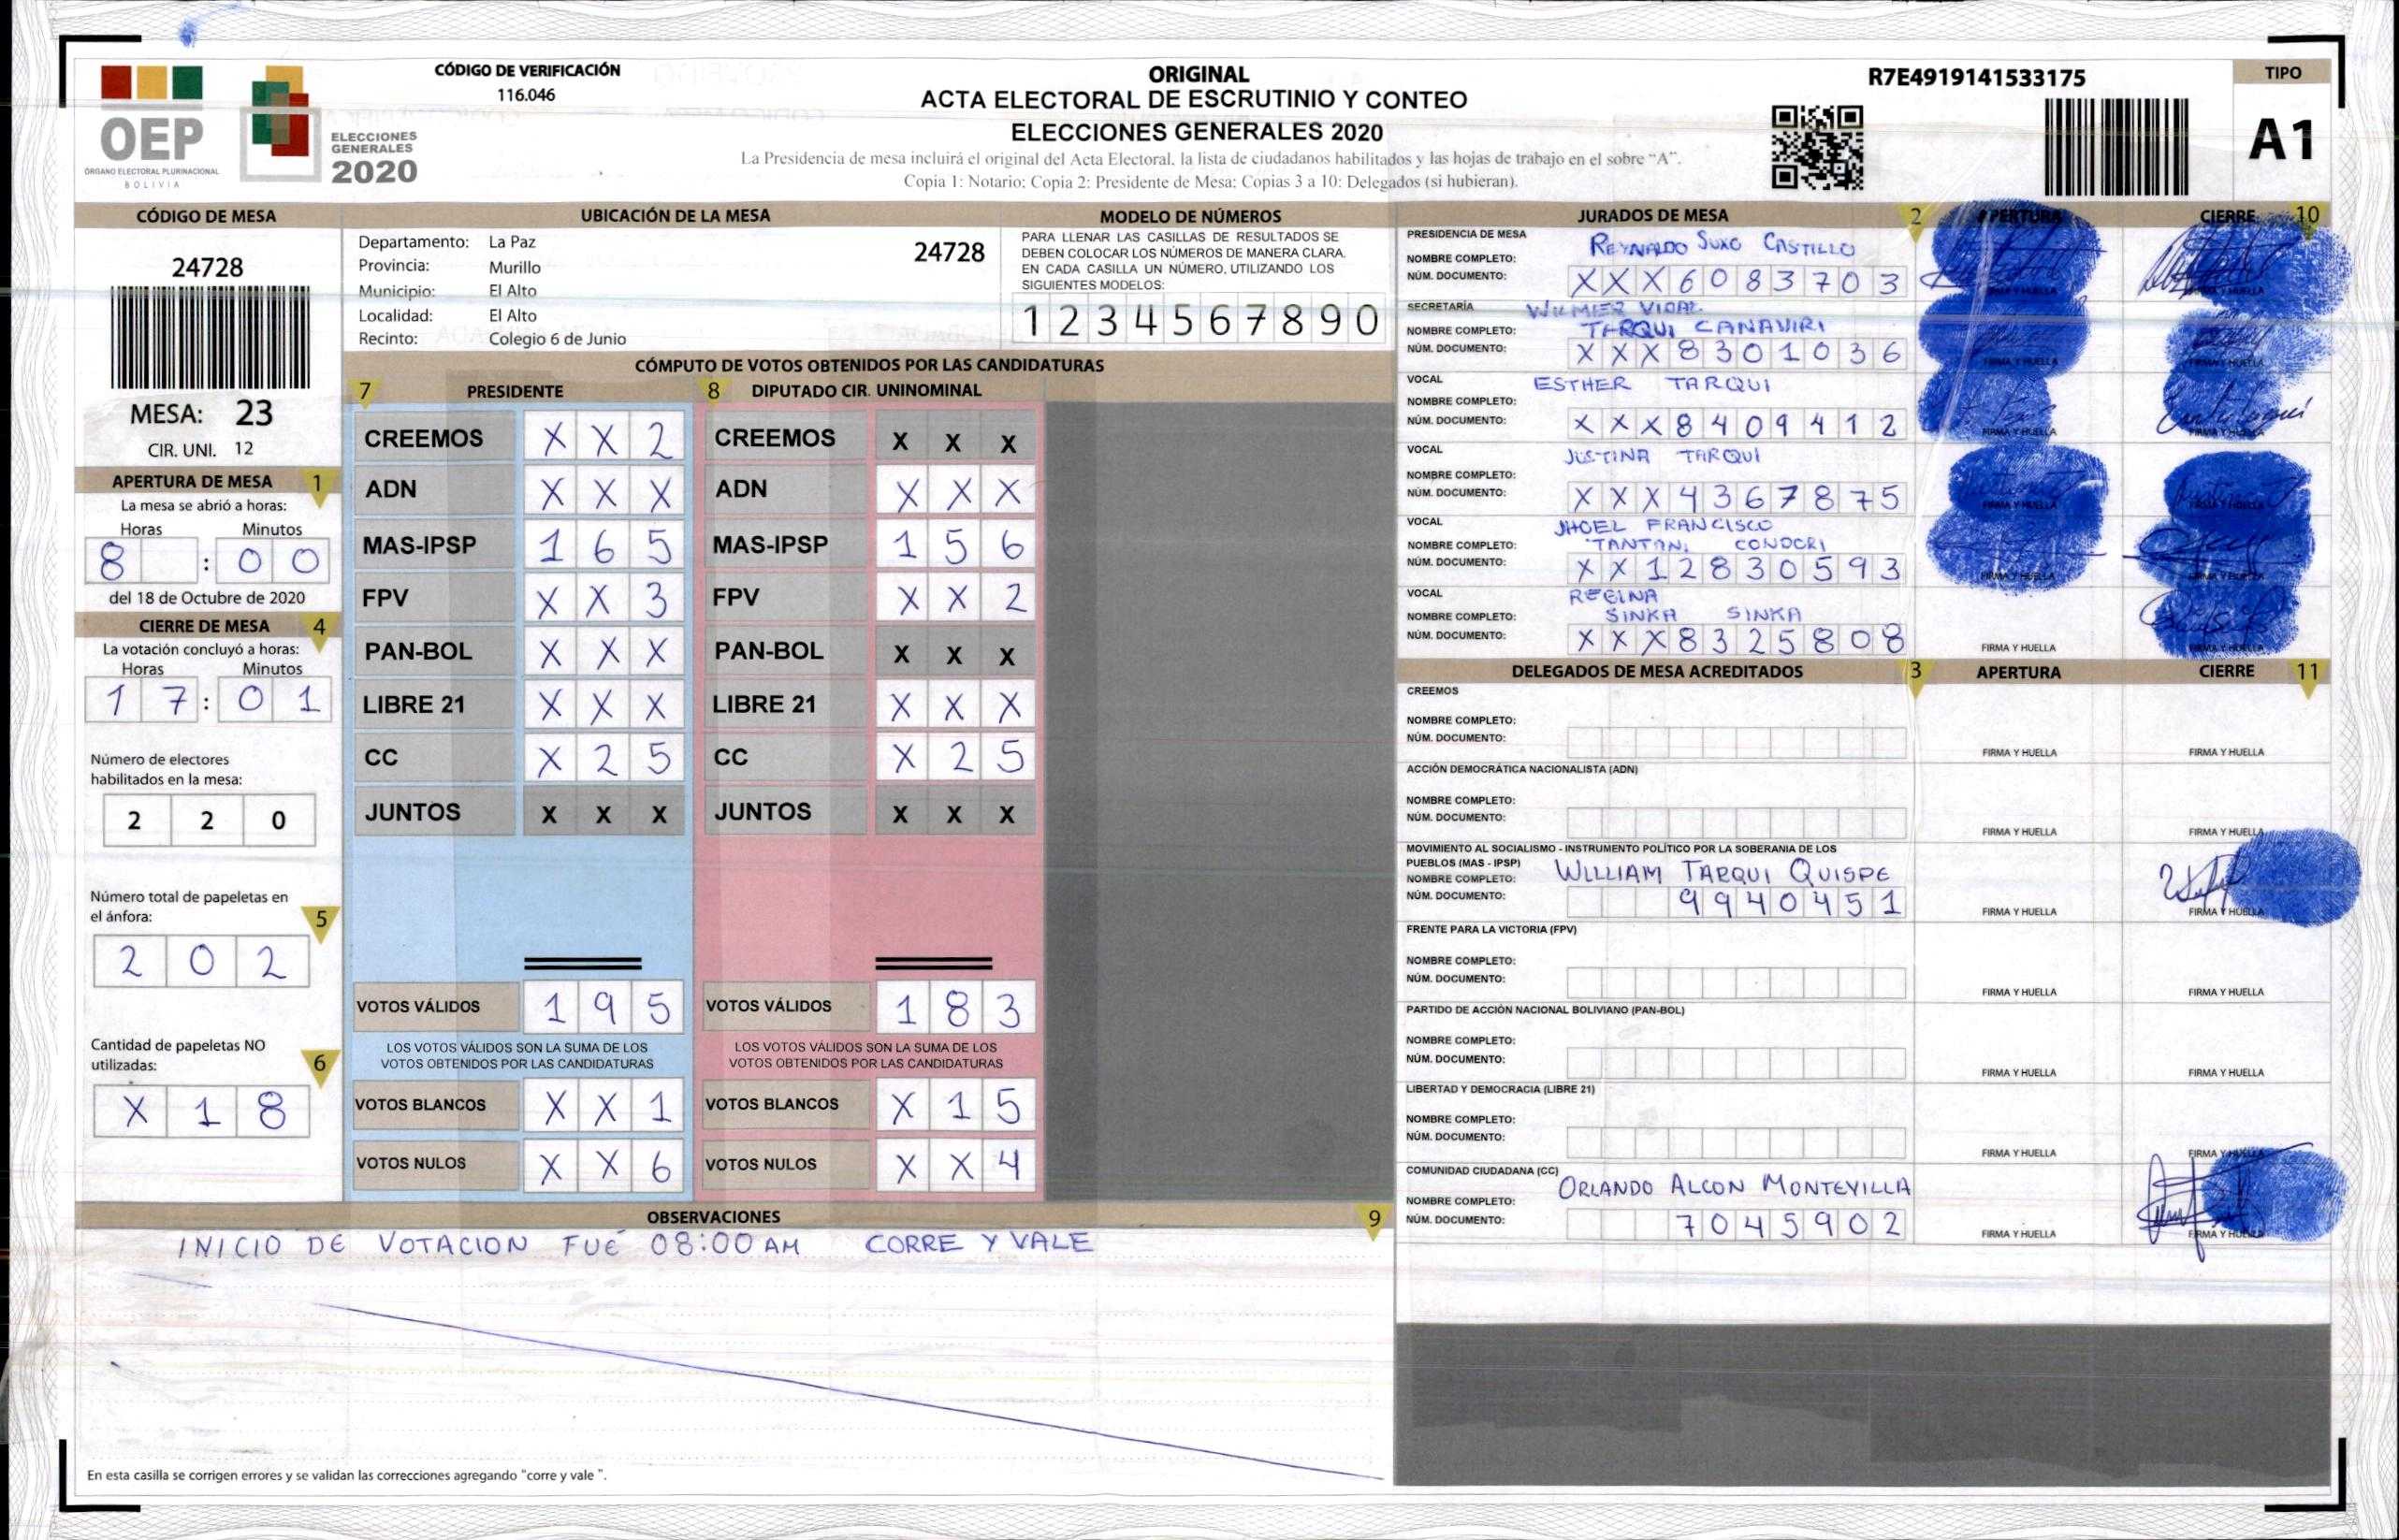 CÓDIGO DE VERIFICACIÓN
116.046
ORIGINAL
ACTA ELECTORAL DE ESCRUTINIO Y CONTEO
ELECCIONES GENERALES 2020
La Presidencia de mesa incluirá el original del Acta Electoral, la lista de ciudadanos habilitados y las hojas de trabajo en el sobre "A".
Copia 1: Notario; Copia 2: Presidente de Mesa; Copias 3 a 10: Delegados (si hubieran).
R7E4919141533175
TIPO
A1
OEP
ÓRGANO ELECTORAL PLURINACIONAL
BOLIVIA
ELECCIONES
GENERALES
2020
CÓDIGO DE MESA
24728
MESA: 23
CIR. UNI. 12
UBICACIÓN DE LA MESA
Departamento: La Paz
24728
Provincia: Murillo
Municipio: El Alto
Localidad: El Alto
Recinto: Colegio 6 de Junio
MODELO DE NÚMEROS
PARA LLENAR LAS CASILLAS DE RESULTADOS SE
DEBEN COLOCAR LOS NÚMEROS DE MANERA CLARA.
EN CADA CASILLA UN NÚMERO, UTILIZANDO LOS
SIGUIENTES MODELOS:
1 2 3 4 5 6 7 8 9 0
APERTURA DE MESA 1
La mesa se abrió a horas:
Horas Minutos
8 : 0 0
del 18 de Octubre de 2020
CIERRE DE MESA 4
La votación concluyó a horas:
Horas Minutos
1 7 : 0 1
Número de electores
habilitados en la mesa:
2 2 0
Número total de papeletas en
el ánfora: 5
2 0 2
Cantidad de papeletas NO
utilizadas: 6
X 1 8
CÓMPUTO DE VOTOS OBTENIDOS POR LAS CANDIDATURAS
7 PRESIDENTE
CREEMOS X X 2
ADN X X X
MAS-IPSP 1 6 5
FPV X X 3
PAN-BOL X X X
LIBRE 21 X X X
CC X 2 5
JUNTOS X X X
VOTOS VÁLIDOS 1 9 5
LOS VOTOS VÁLIDOS SON LA SUMA DE LOS
VOTOS OBTENIDOS POR LAS CANDIDATURAS
VOTOS BLANCOS X X 1
VOTOS NULOS X X 6
8 DIPUTADO CIR. UNINOMINAL
CREEMOS X X X
ADN X X X
MAS-IPSP 1 5 6
FPV X X 2
PAN-BOL X X X
LIBRE 21 X X X
CC X 2 5
JUNTOS X X X
VOTOS VÁLIDOS 1 8 3
LOS VOTOS VÁLIDOS SON LA SUMA DE LOS
VOTOS OBTENIDOS POR LAS CANDIDATURAS
VOTOS BLANCOS X 1 5
VOTOS NULOS X X 4
OBSERVACIONES 9
INICIO DE VOTACION FUÉ 08:00 AM CORRE Y VALE
En esta casilla se corrigen errores y se validan las correcciones agregando "corre y vale ".
JURADOS DE MESA 2 APERTURA CIERRE 10
PRESIDENCIA DE MESA
NOMBRE COMPLETO: REYNALDO SUXO CASTILLO
NÚM. DOCUMENTO: X X X 6 0 8 3 7 0 3
FIRMA Y HUELLA FIRMA Y HUELLA
SECRETARÍA
NOMBRE COMPLETO: WILMIER VIDAL
TARQUI CANAVIRI
NÚM. DOCUMENTO: X X X 8 3 0 1 0 3 6
FIRMA Y HUELLA FIRMA Y HUELLA
VOCAL
NOMBRE COMPLETO: ESTHER TARQUI
NÚM. DOCUMENTO: X X X 8 4 0 9 4 1 2
FIRMA Y HUELLA FIRMA Y HUELLA
VOCAL
NOMBRE COMPLETO: JUSTINA TARQUI
NÚM. DOCUMENTO: X X X 4 3 6 7 8 7 5
FIRMA Y HUELLA FIRMA Y HUELLA
VOCAL
NOMBRE COMPLETO: JHOEL FRANCISCO
TANTANI CONDORI
NÚM. DOCUMENTO: X X 1 2 8 3 0 5 9 3
FIRMA Y HUELLA FIRMA Y HUELLA
VOCAL
NOMBRE COMPLETO: REGINA
SINKA SINKA
NÚM. DOCUMENTO: X X X 8 3 2 5 8 0 8
FIRMA Y HUELLA FIRMA Y HUELLA
DELEGADOS DE MESA ACREDITADOS 3 APERTURA CIERRE 11
CREEMOS
NOMBRE COMPLETO:
NÚM. DOCUMENTO:
FIRMA Y HUELLA FIRMA Y HUELLA
ACCIÓN DEMOCRÁTICA NACIONALISTA (ADN)
NOMBRE COMPLETO:
NÚM. DOCUMENTO:
FIRMA Y HUELLA FIRMA Y HUELLA
MOVIMIENTO AL SOCIALISMO - INSTRUMENTO POLÍTICO POR LA SOBERANIA DE LOS
PUEBLOS (MAS - IPSP)
NOMBRE COMPLETO: WILLIAM TARQUI QUISPE
NÚM. DOCUMENTO: 9 9 4 0 4 5 1
FIRMA Y HUELLA FIRMA Y HUELLA
FRENTE PARA LA VICTORIA (FPV)
NOMBRE COMPLETO:
NÚM. DOCUMENTO:
FIRMA Y HUELLA FIRMA Y HUELLA
PARTIDO DE ACCIÓN NACIONAL BOLIVIANO (PAN-BOL)
NOMBRE COMPLETO:
NÚM. DOCUMENTO:
FIRMA Y HUELLA FIRMA Y HUELLA
LIBERTAD Y DEMOCRACIA (LIBRE 21)
NOMBRE COMPLETO:
NÚM. DOCUMENTO:
FIRMA Y HUELLA FIRMA Y HUELLA
COMUNIDAD CIUDADANA (CC)
NOMBRE COMPLETO: ORLANDO ALCON MONTEVILLA
NÚM. DOCUMENTO: 7 0 4 5 9 0 2
FIRMA Y HUELLA FIRMA Y HUELLA